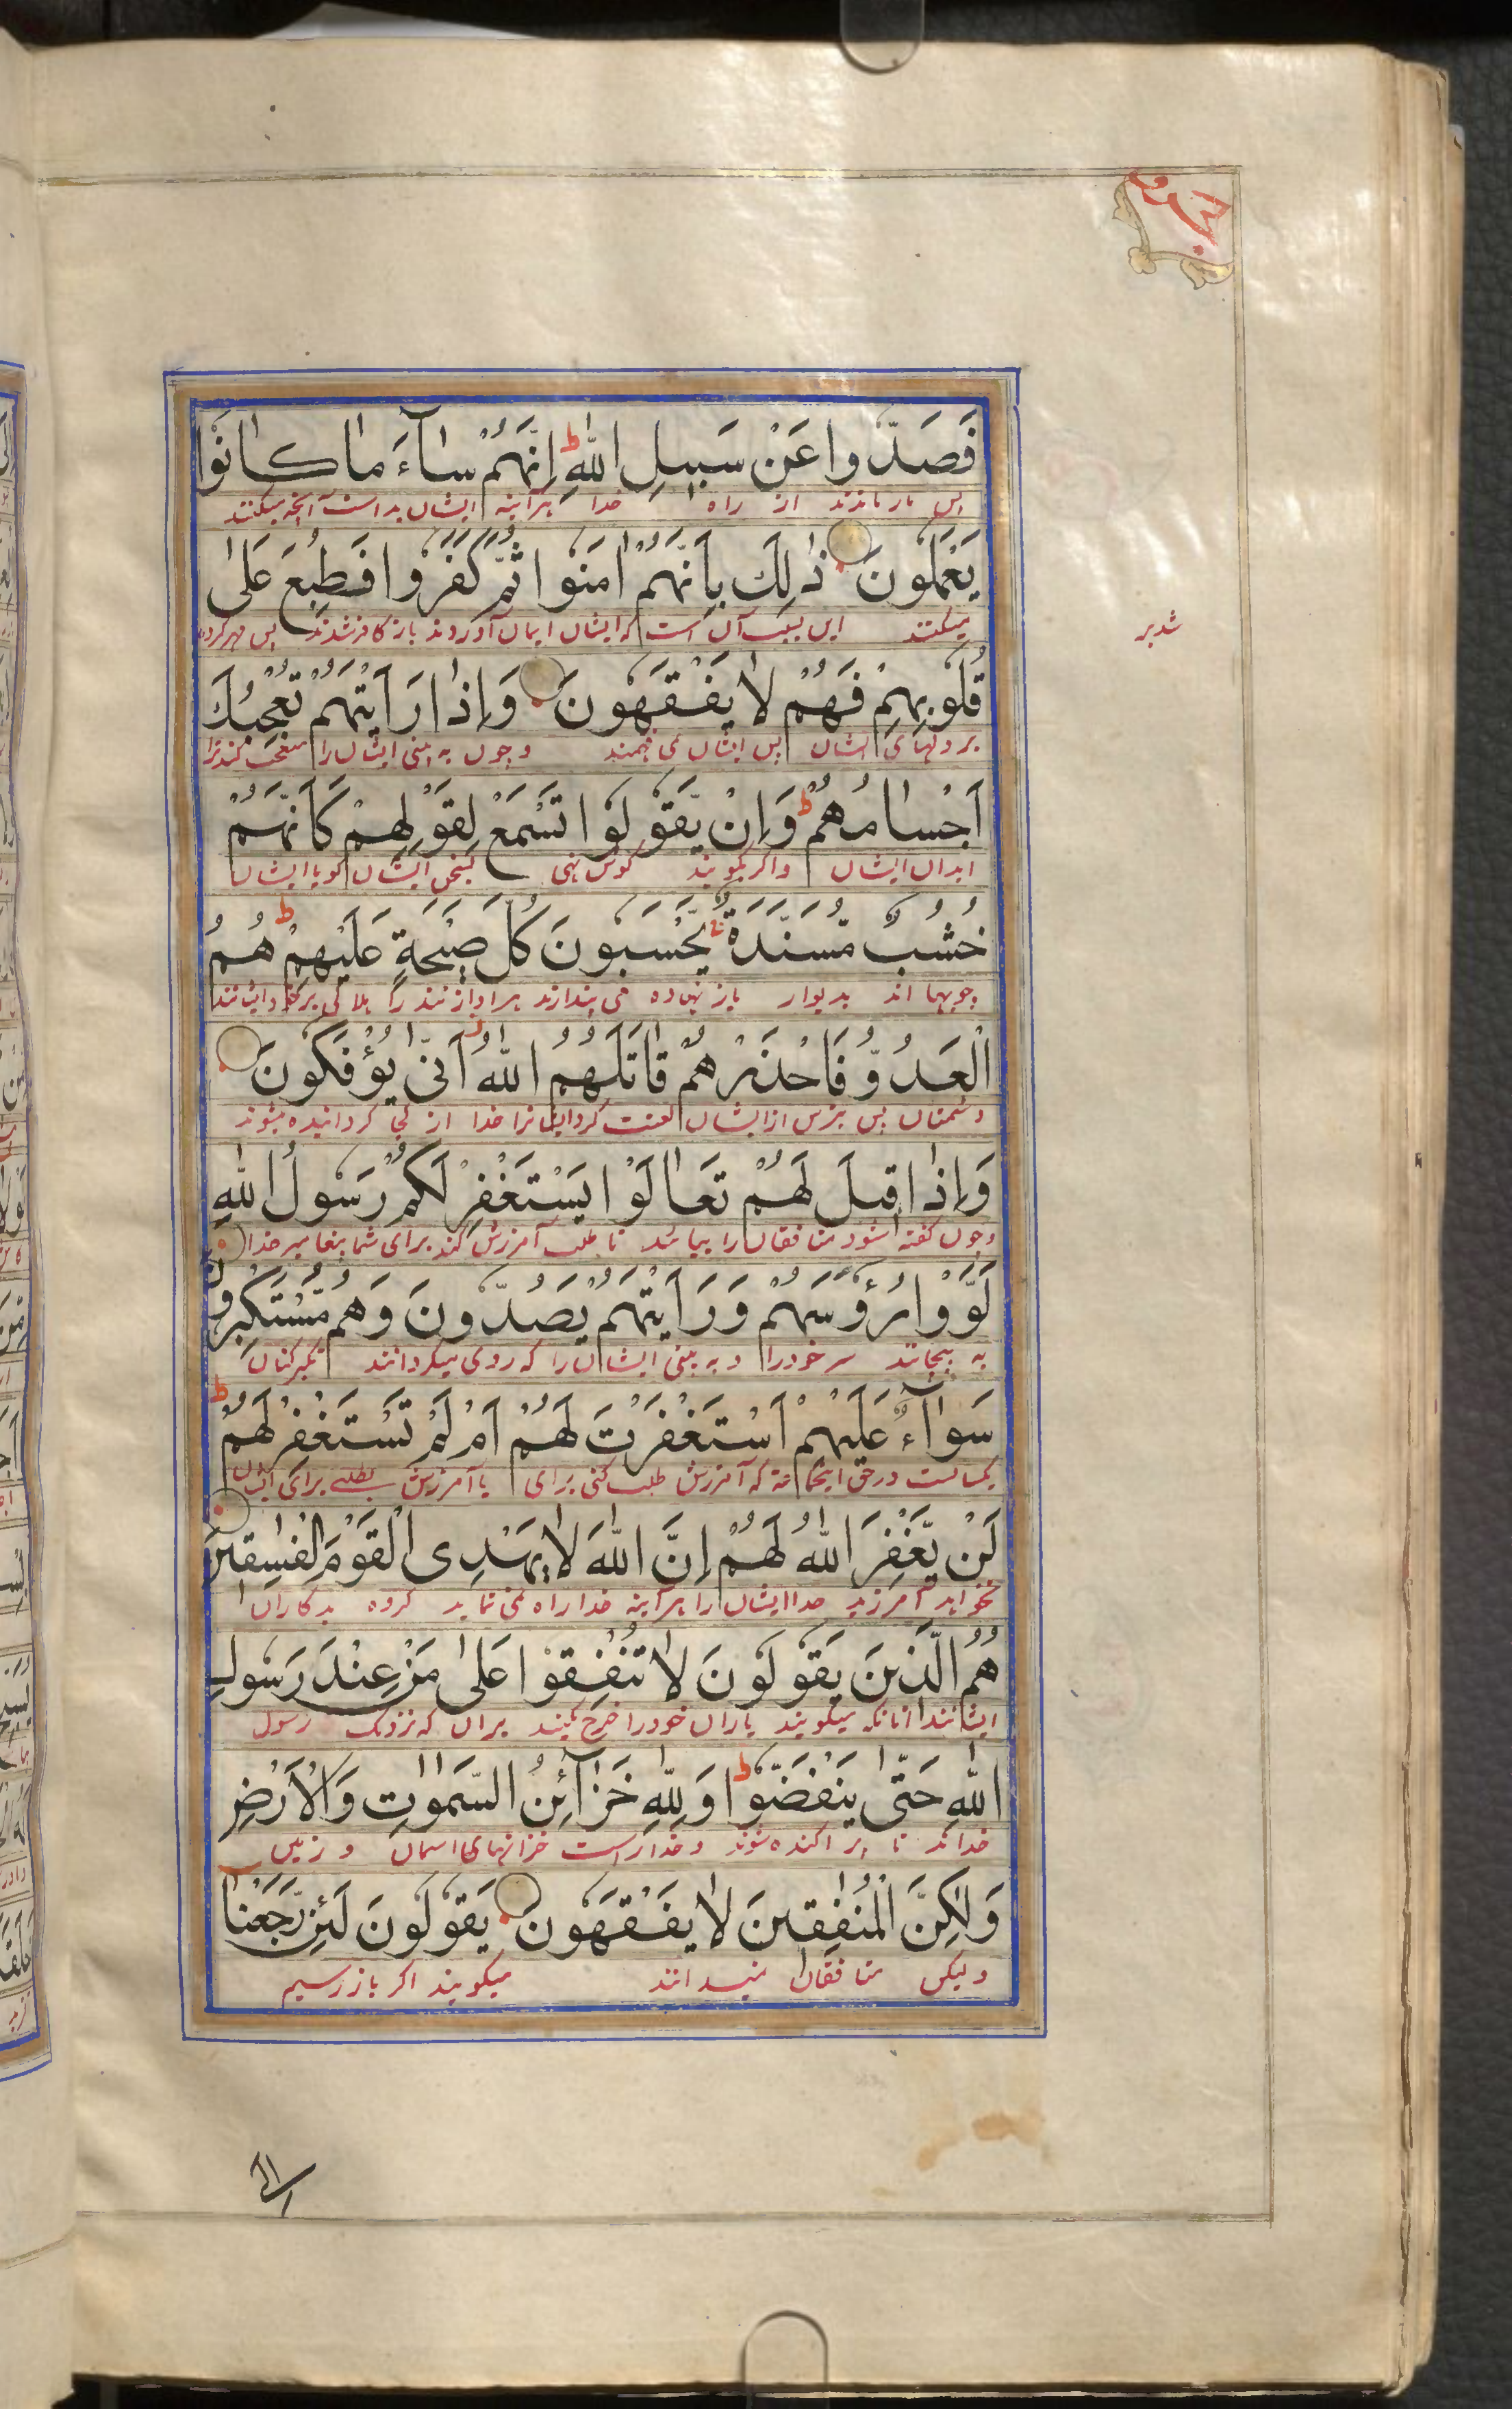 فَصَدُّوا عَنْ سَبِيلِ اللّٰهِ ط اِنَّهُمْ سَآءَ مَا كَانُوْا
پس باز ماندند از راه خدا هر آینه ایشان بد است آنچه میکنند
يَعْمَلُوْنَ ذٰلِكَ بِاَنَّهُمْ اٰمَنُوْا ثُمَّ كَفَرُوْا فَطُبِعَ عَلٰى
میکنند این بسبب آن است که ایشان ایمان آوردند باز کافر شدند پس مهر کرده
قُلُوْبِهِمْ فَهُمْ لَا يَفْقَهُوْنَ وَاِذَا رَاَيْتَهُمْ تُعْجِبُكَ
بر دلهای ایشان پس ایشان نمی فهمند و چون به بینی ایشان را متعجب کند ترا
اَجْسَامُهُمْ ط وَاِنْ يَّقُوْلُوْا تَسْمَعْ لِقَوْلِهِمْ كَاَنَّهُمْ
ابدان ایشان و اگر بگویند گوش نهی بسخن ایشان گویا ایشان
خُشُبٌ مُّسَنَّدَةٌ يَحْسَبُوْنَ كُلَّ صَيْحَةٍ عَلَيْهِمْ ط هُمُ
چوبها اند بدیوار باز نهاده می پندارند هر آواز تند را
الْعَدُوُّ فَاحْذَرْهُمْ قَاتَلَهُمُ اللّٰهُ اَنّٰى يُؤْفَكُوْنَ
دشمنان پس بترس از ایشان لعنت کرد ایشانرا خدا از کجا گردانیده میشوند
وَاِذَا قِيْلَ لَهُمْ تَعَالَوْا يَسْتَغْفِرْ لَكُمْ رَسُوْلُ اللّٰهِ
و چون گفته شود منافقان را بیائید تا طلب آمرزش کند برای شما پیغامبر خدا
لَوَّوْا رُءُوْسَهُمْ وَرَاَيْتَهُمْ يَصُدُّوْنَ وَهُمْ مُّسْتَكْبِرُوْنَ
به پیچانند سر خود را و به بینی ایشان را که روی میگردانند تکبر کنان
سَوَآءٌ عَلَيْهِمْ اَسْتَغْفَرْتَ لَهُمْ اَمْ لَمْ تَسْتَغْفِرْ لَهُمْ ط
یکسانست در حق اینجماعة که آمرزش طلب کنی برای یا آمرزش نطلبی برای ایشان
لَنْ يَّغْفِرَ اللّٰهُ لَهُمْ اِنَّ اللّٰهَ لَا يَهْدِى الْقَوْمَ الْفٰسِقِيْنَ
نخواهد آمرزید خدا ایشان را هر آینه خدا راه نمی نماید گروه بدکاران
هُمُ الَّذِيْنَ يَقُوْلُوْنَ لَا تُنْفِقُوْا عَلٰى مَنْ عِنْدَ رَسُوْلِ
ایشانند آنانکه میگویند یاران خود را خرج مکنید بر آن که نزدیک رسول
اللّٰهِ حَتّٰى يَنْفَضُّوْا ط وَلِلّٰهِ خَزَآئِنُ السَّمٰوٰتِ وَالْاَرْضِ
خداند تا پراکنده شوند و خدا راست خزانهای آسمان و زمین
وَلٰكِنَّ الْمُنٰفِقِيْنَ لَا يَفْقَهُوْنَ يَقُوْلُوْنَ لَئِنْ رَّجَعْنَا
ولیکن منافقان نمیدانند میگویند اگر باز رسیم